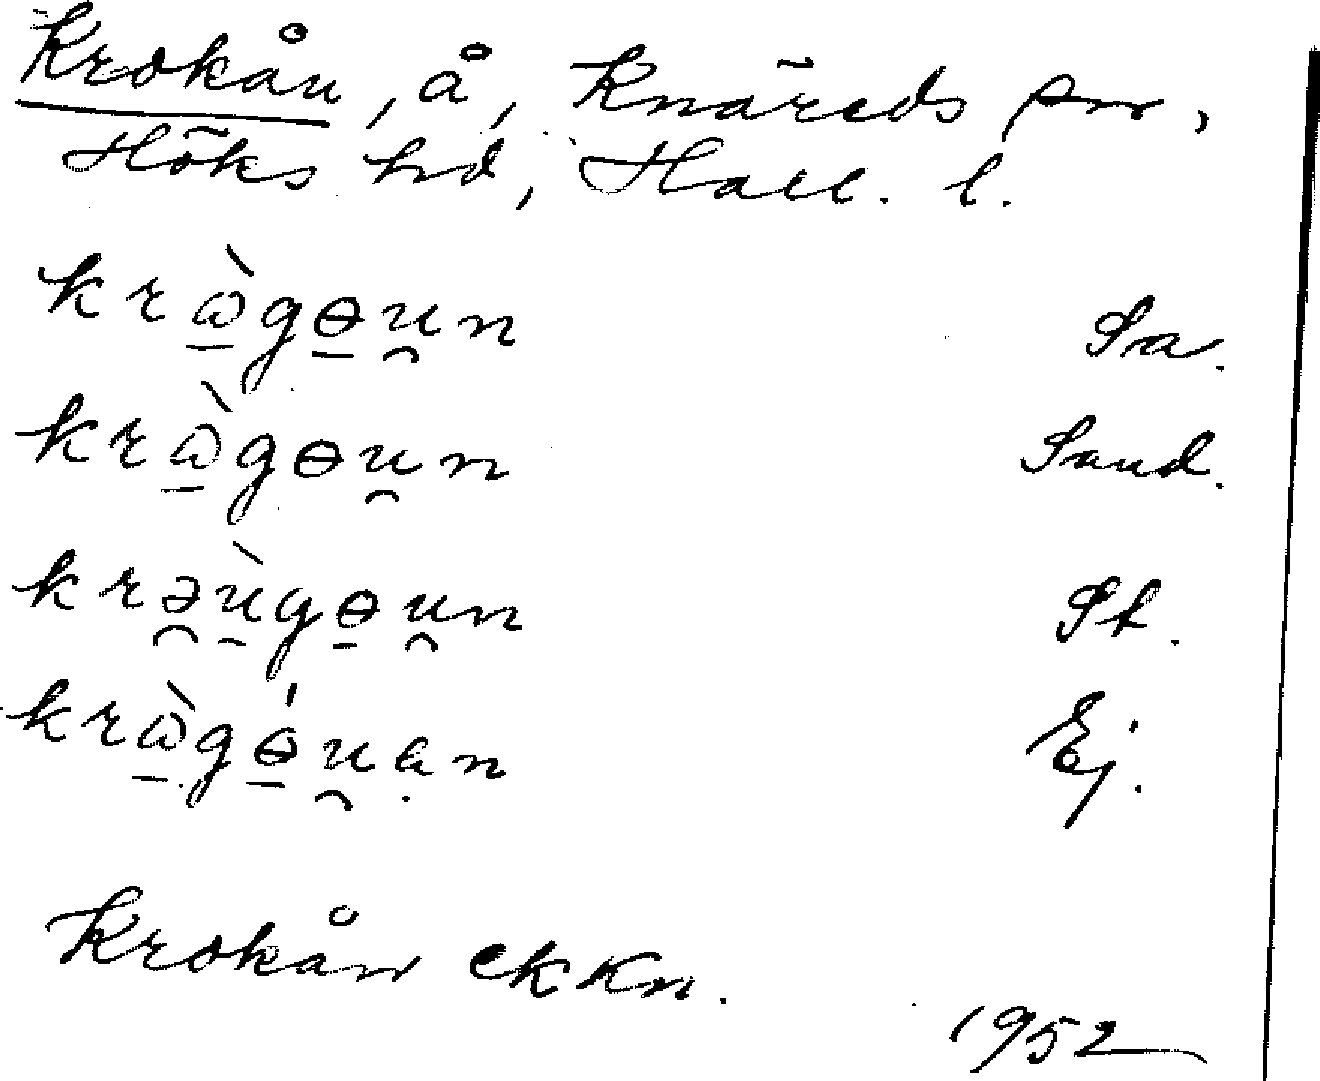 Krokån, å, Knäreds sn,
Höks hd, Hall. l.
krὼ̱gɵ̱u̯n Sa.
krὼ̱gɵu̯n Sand.
krə̯ù̱gɵ̱u̯n St.
krὼ̱gɵ̱́u̯ạn Ej.
Krokån ekKn.
1952